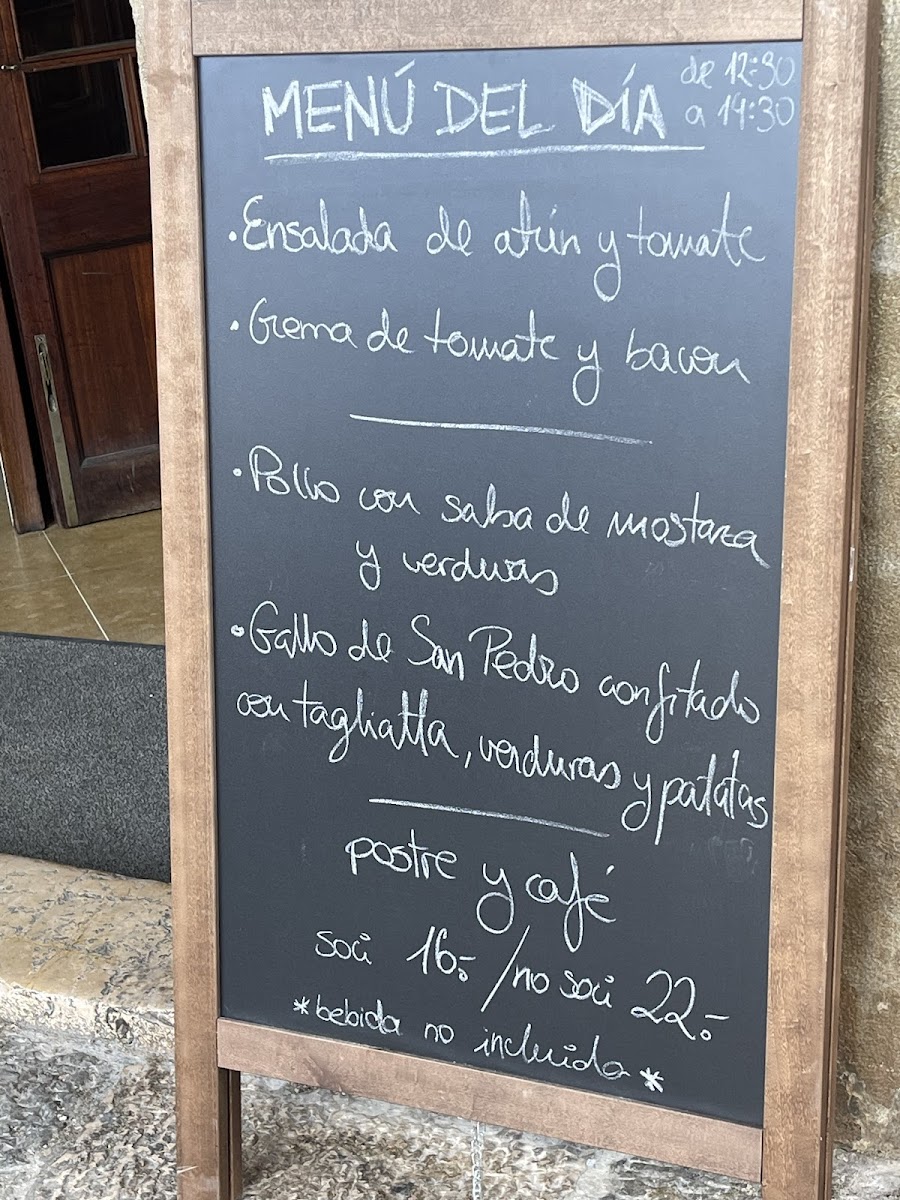 MENÚ DEL DÍA
de 12:30
a 14:30
• Ensalada de atún y tomate
• Crema de tomate y bacon
• Pollo con salsa de mostaza
y verduras
• Gallo de San Pedro confitado
con tagliatta, verduras y patatas
postre y café
soci 16.- / no soci 22.-
*bebida no incluida*